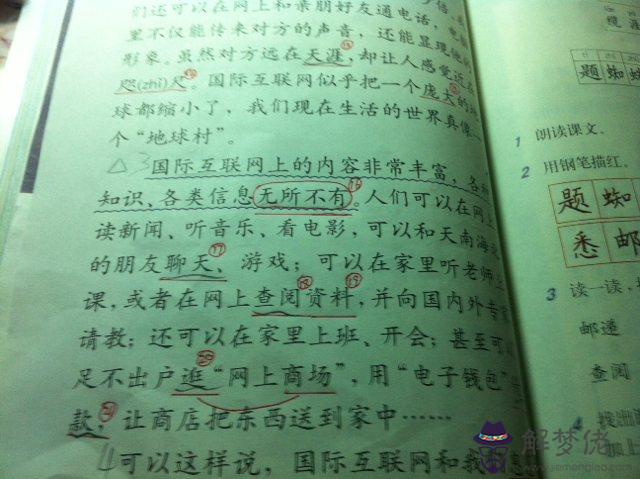 们还可以在网上和亲朋好友通电话,
里不仅能传来对方的声音,还能显现他
形象。虽然对方远在天涯,却让人感觉近在
咫(zhǐ)尺。国际互联网似乎把一个庞大的地
球都缩小了,我们现在生活的世界真像一
个“地球村”。
国际互联网上的内容非常丰富,各种
知识、各类信息无所不有。人们可以在网上
读新闻、听音乐、看电影,可以和天南海北
的朋友聊天、游戏;可以在家里听老师上
课,或者在网上查阅资料,并向国内外专家
请教;还可以在家里上班、开会;甚至可以
足不出户逛“网上商场”,用“电子钱包”
款,让商店把东西送到家中……
可以这样说,国际互联网和我
题 蜘
1 朗读课文。
2 用钢笔描红。
题 蜘
悉 邮
3 读一读,
邮递
查阅
4
加上
解梦佬